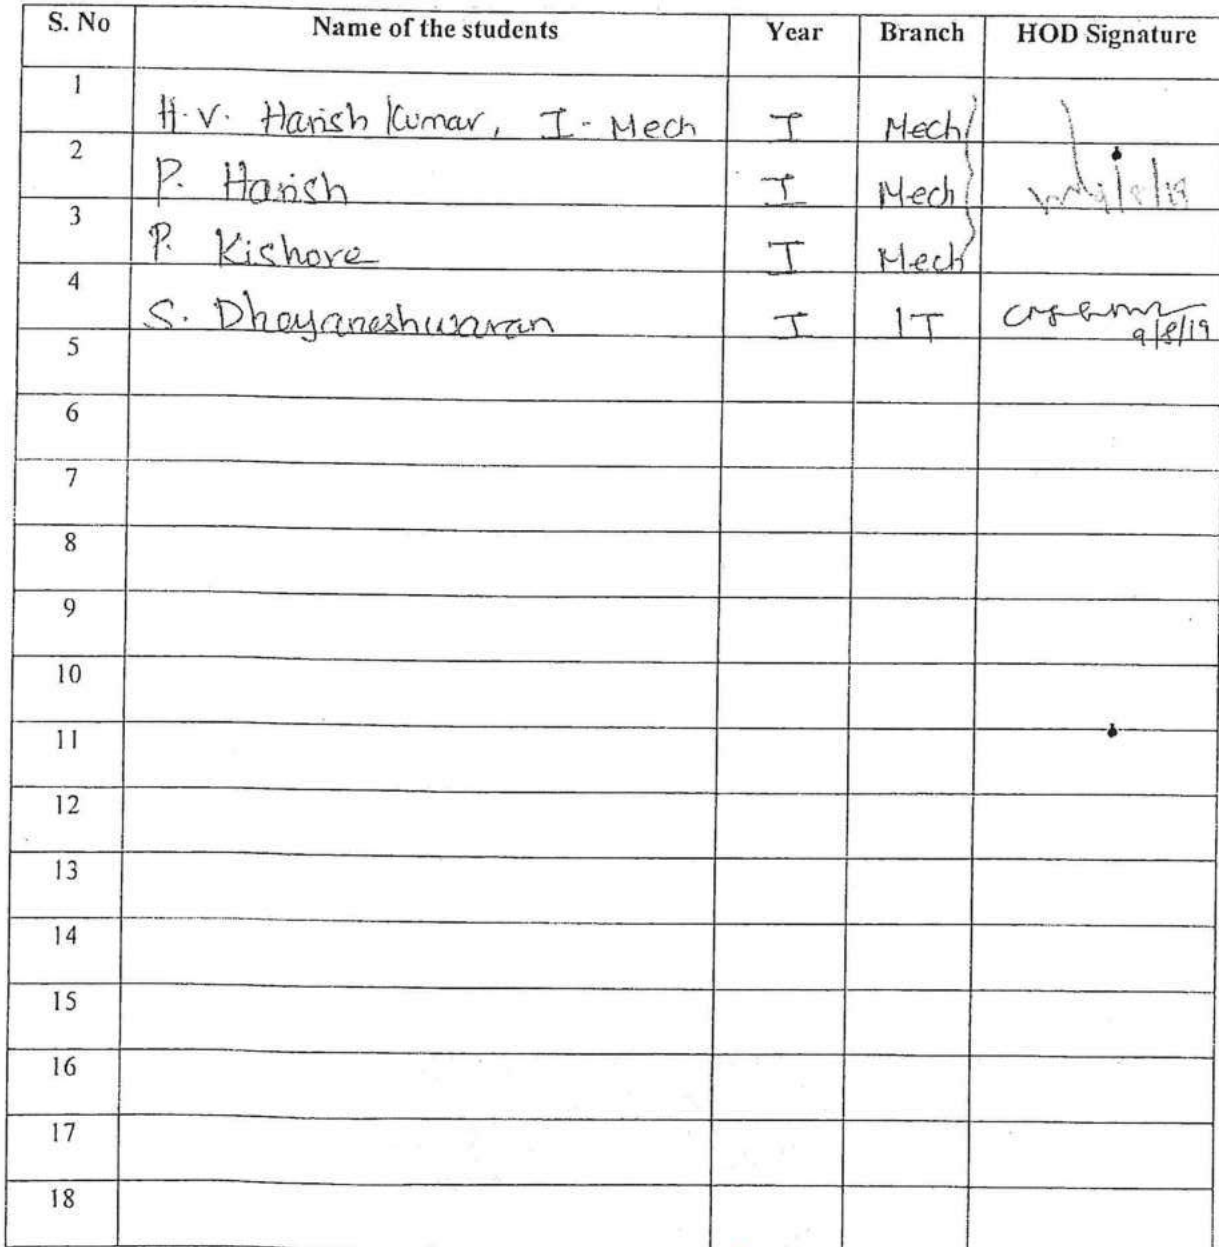 S. No Name of the students Year Branch HOD Signature
1 H.V. Harish Kumar, I - Mech I Mech
2 P. Harish I Mech 9/8/19
3 P. Kishore I Mech
4 S. Dhayaneshwaran I IT
9/8/19
5
6
7
8
9
10
11
12
13
14
15
16
17
18